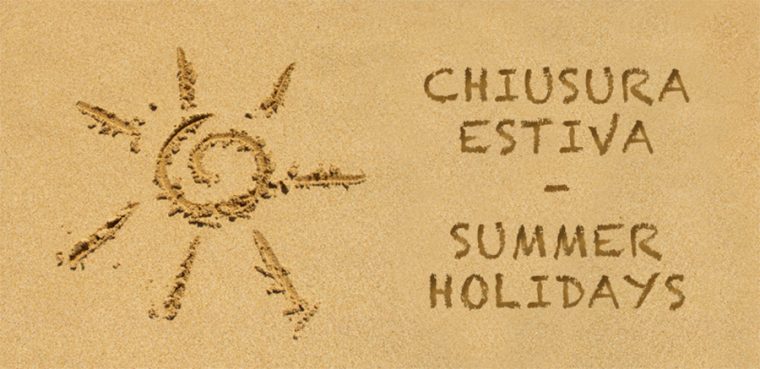 CHIUSURA
ESTIVA
-
SUMMER
HOLIDAYS